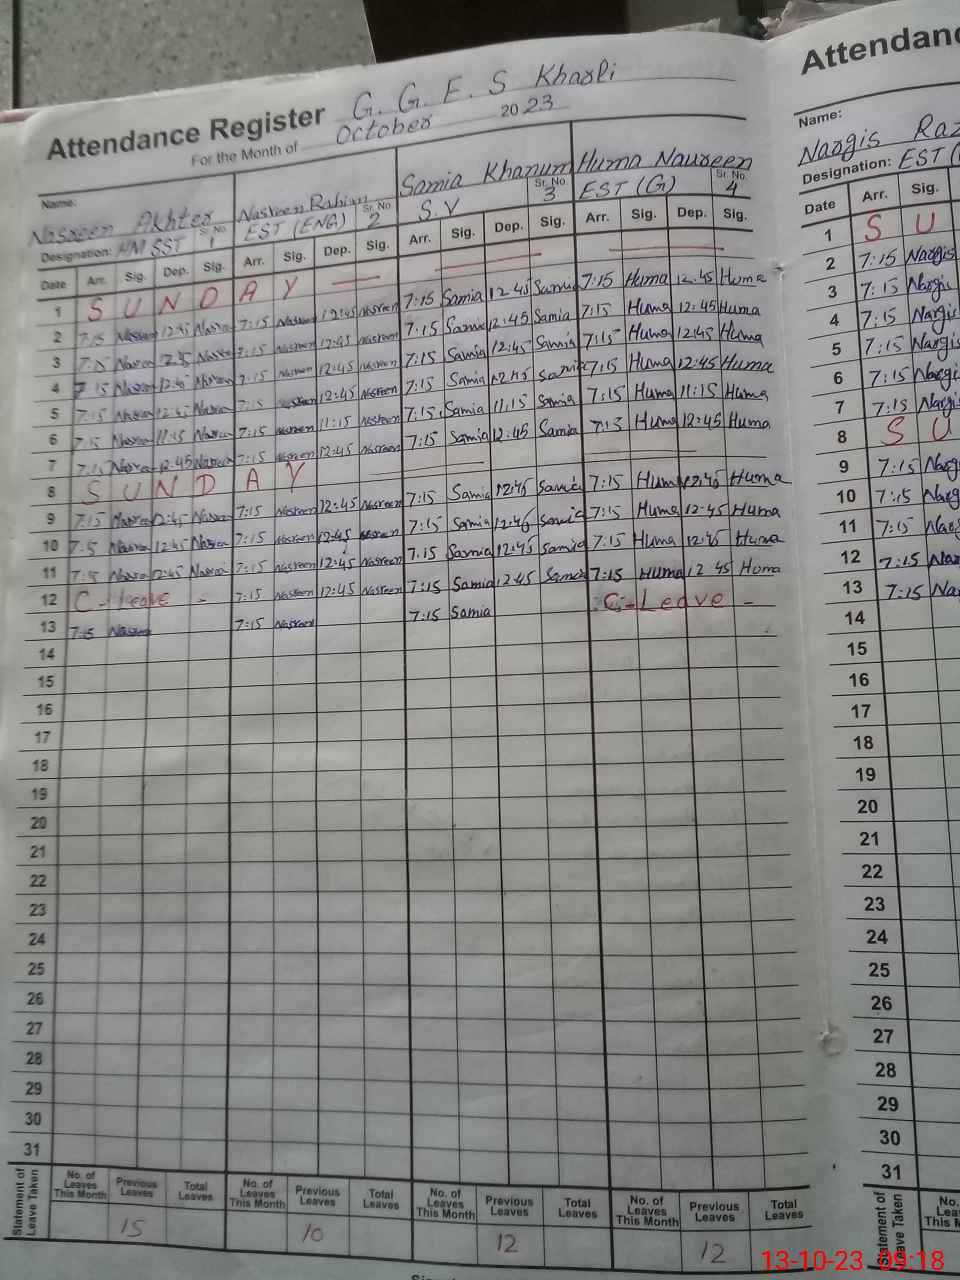 Attendance Register G. G. E. S Kharli
For the Month of October 2023
Name: Nasreen Akhter Nasreen Samia Khanum Huma Naureen
Designation: HM SST Sr. No 1 EST (ENG) Sr. No. 2 S.V Sr. No. 3 EST (G) Sr. No. 4
Date Arr. Sig. Dep. Sig. Arr. Sig. Dep. Sig. Arr. Sig. Dep. Sig. Arr. Sig. Dep. Sig.
1 S U N D A Y
2 7:15 Nasreen 12:45 7:15 Nasreen 12:45 Nasreen 7:15 Samia 12:45 Samia 7:15 Huma 12:45 Huma
3 7:15 Nasreen 12:45 7:15 Nasreen 12:45 Nasreen 7:15 Samia 12:45 Samia 7:15 Huma 12:45 Huma
4 7:15 Nasreen 12:45 Nasreen 7:15 Nasreen 12:45 Nasreen 7:15 Samia 12:45 Samia 7:15 Huma 12:45 Huma
5 7:15 Nasreen 12:45 Nasreen 7:15 Nasreen 12:45 Nasreen 7:15 Samia 12:45 Samia 7:15 Huma 12:45 Huma
6 7:15 Nasreen 11:15 Nasreen 7:15 Nasreen 11:15 Nasreen 7:15 Samia 11:15 Samia 7:15 Huma 11:15 Huma
7 7:15 Nasreen 12:45 Nasreen 7:15 Nasreen 12:45 Nasreen 7:15 Samia 12:45 Samia 7:13 Huma 12:45 Huma
8 S U N D A Y
9 7:15 Nasreen 12:45 Nasreen 7:15 Nasreen 12:45 Nasreen 7:15 Samia 12:45 Samia 7:15 Huma 12:45 Huma
10 7:15 Nasreen 12:45 Nasreen 7:15 Nasreen 12:45 Nasreen 7:15 Samia 12:45 Samia 7:15 Huma 12:45 Huma
11 7:15 Nasreen 12:45 Nasreen 7:15 Nasreen 12:45 Nasreen 7:15 Samia 12:45 Samia 7:15 Huma 12:45 Huma
12 C-Leave - 7:15 Nasreen 12:45 Nasreen 7:15 Samia 12:45 Samia 7:15 Huma 12:45 Huma
13 7:15 Nasreen 7:15 Nasreen 7:15 Samia C-Leave -
14
15
16
17
18
19
20
21
22
23
24
25
26
27
28
29
30
31
Statement of Leave Taken
No. of Leaves This Month Previous Leaves Total Leaves No. of Leaves This Month Previous Leaves Total Leaves No. of Leaves This Month Previous Leaves Total Leaves No. of Leaves This Month Previous Leaves Total Leaves
15 10 12 12
Name:
Nargis
Designation: EST
Date Arr. Sig.
1 S U
2 7:15 Nargis
3 7:15 Nargis
4 7:15 Nargis
5 7:15 Nargis
6 7:15 Nargis
7 7:15 Nargis
8 S U
9 7:15
10 7:15
11 7:15
12 7:15
13 7:15
14
15
16
17
18
19
20
21
22
23
24
25
26
27
28
29
30
31
Statement of Leave Taken
No.
This
13-10-23 09:18